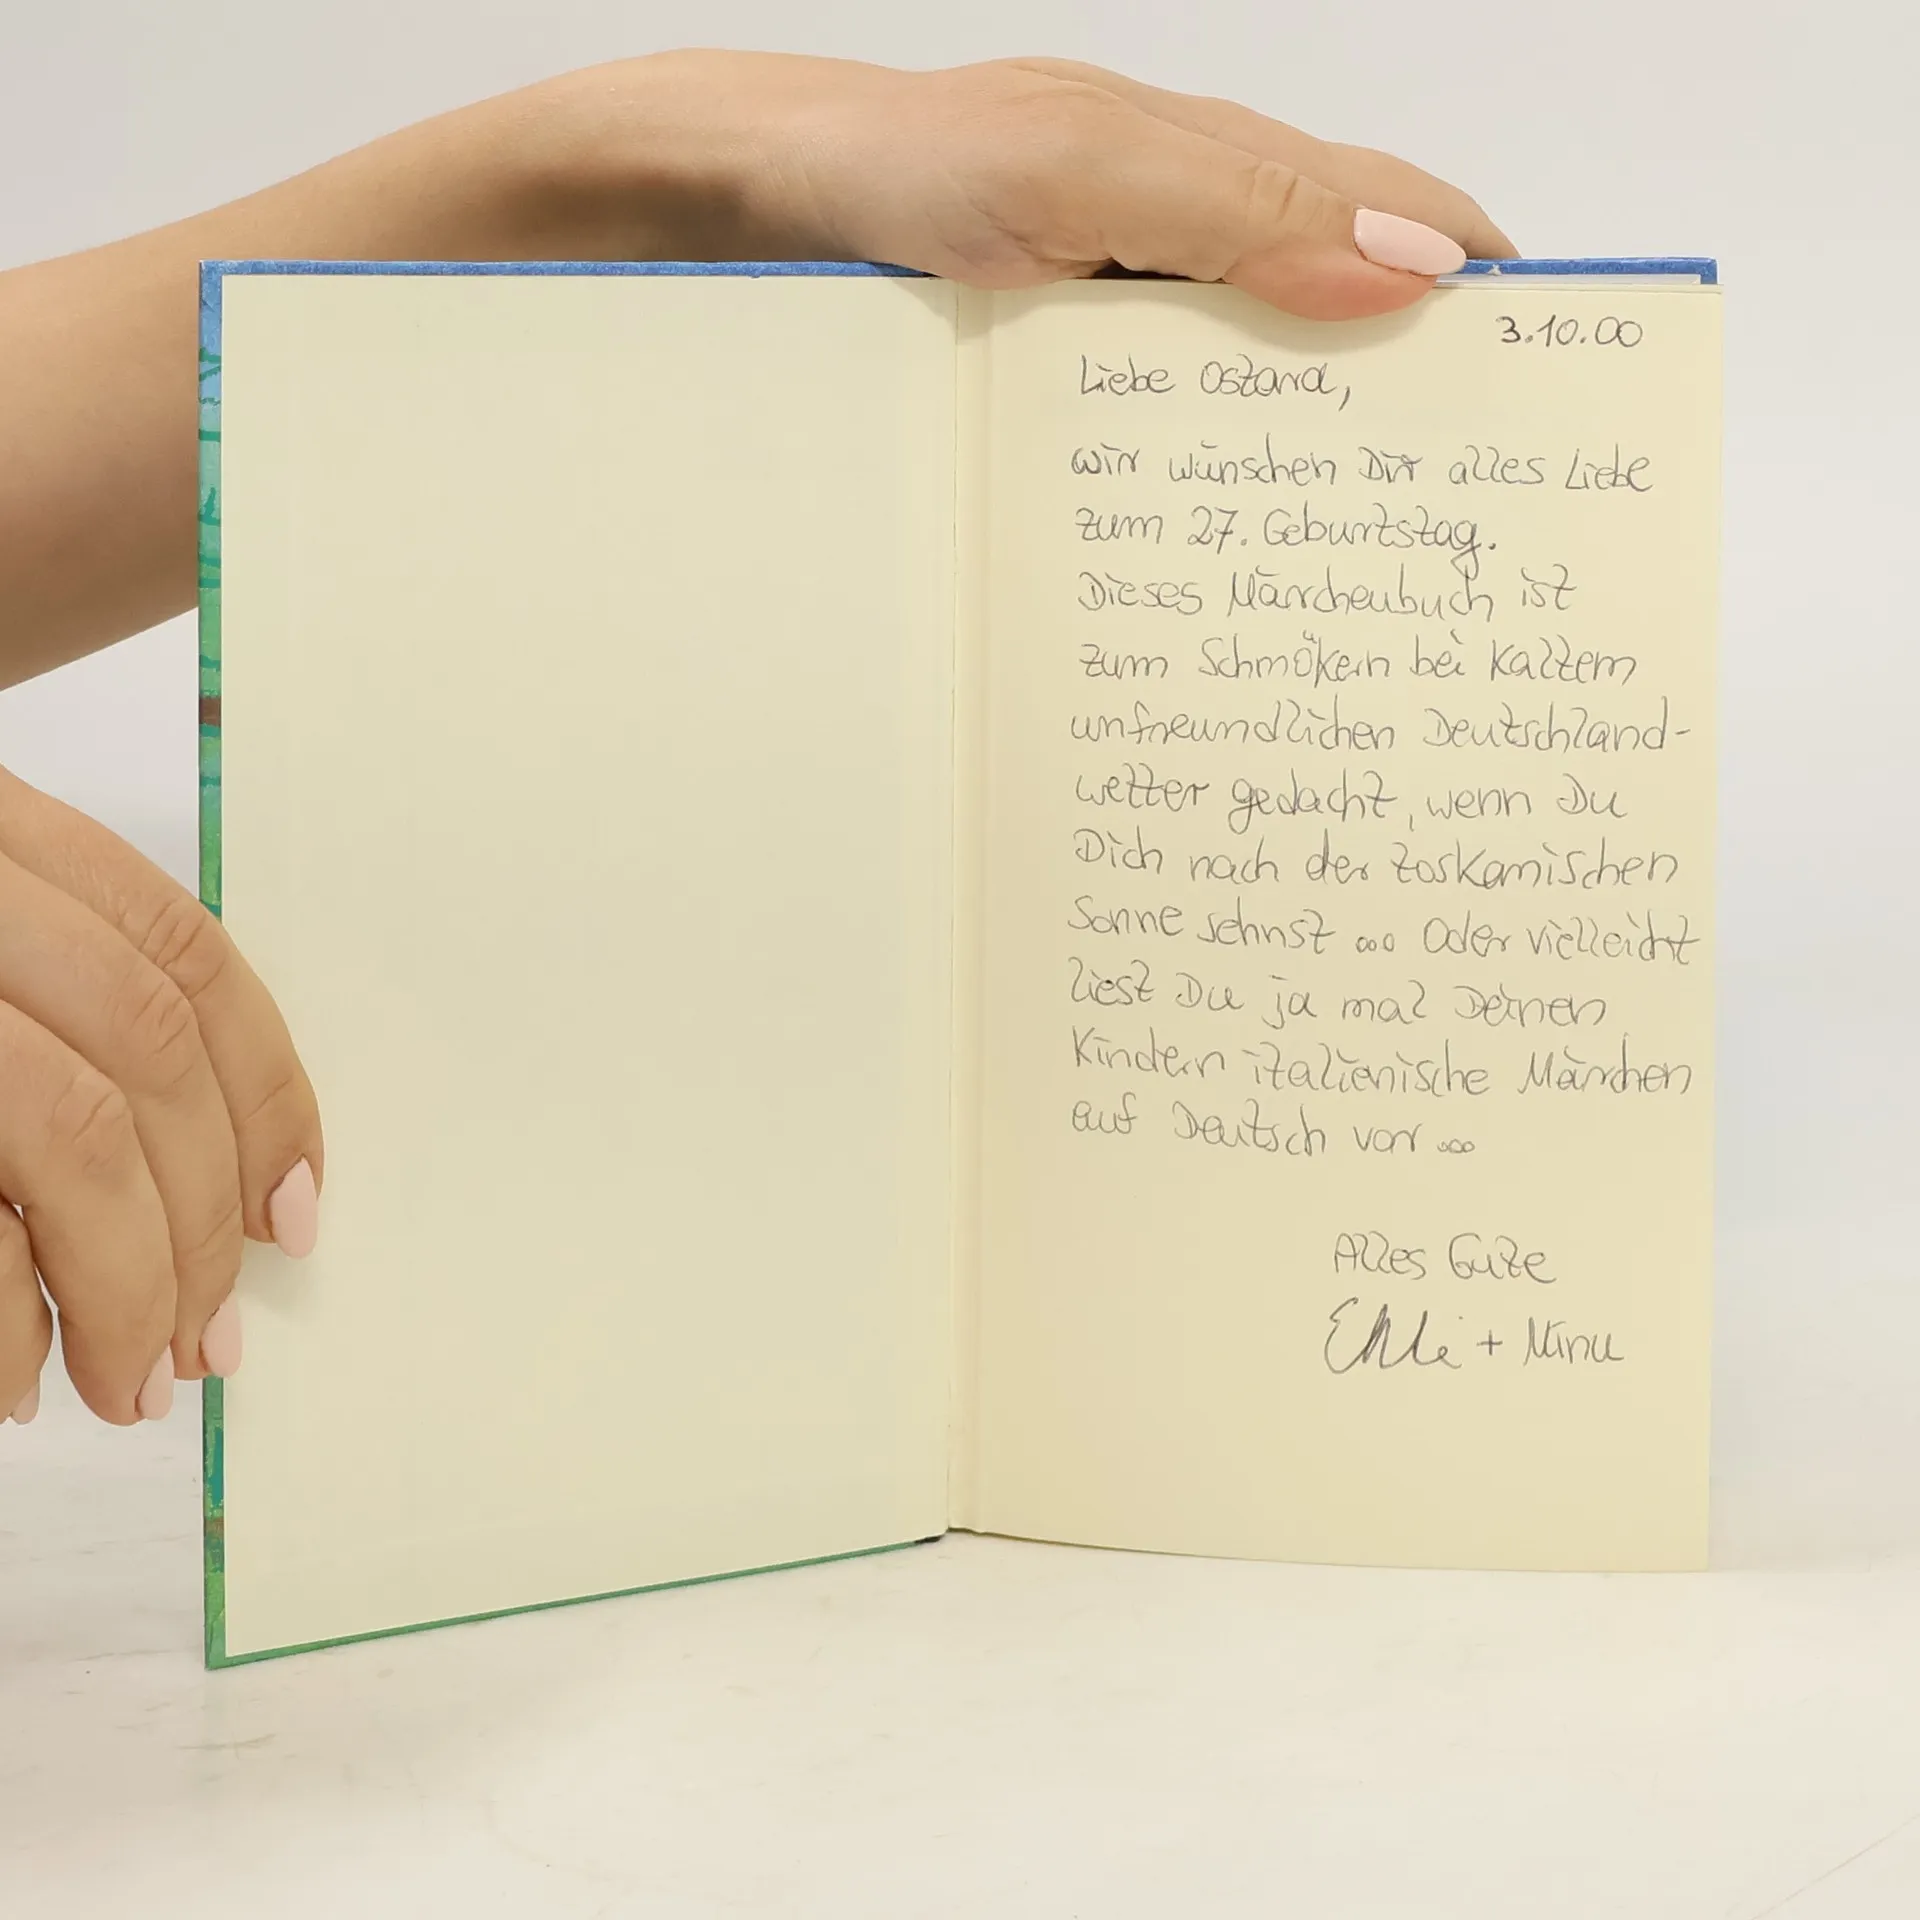 3.10.00
Liebe Ostara,
wir wünschen Dir alles Liebe
zum 27. Geburtstag.
Dieses Märchenbuch ist
zum Schmökern bei kaltem
unfreundlichen Deutschland-
wetter gedacht, wenn Du
Dich nach der toskanischen
Sonne sehnst ... Oder vielleicht
liest Du ja mal Deinen
Kindern italienische Märchen
auf Deutsch vor ...
Alles Gute
+ Minu